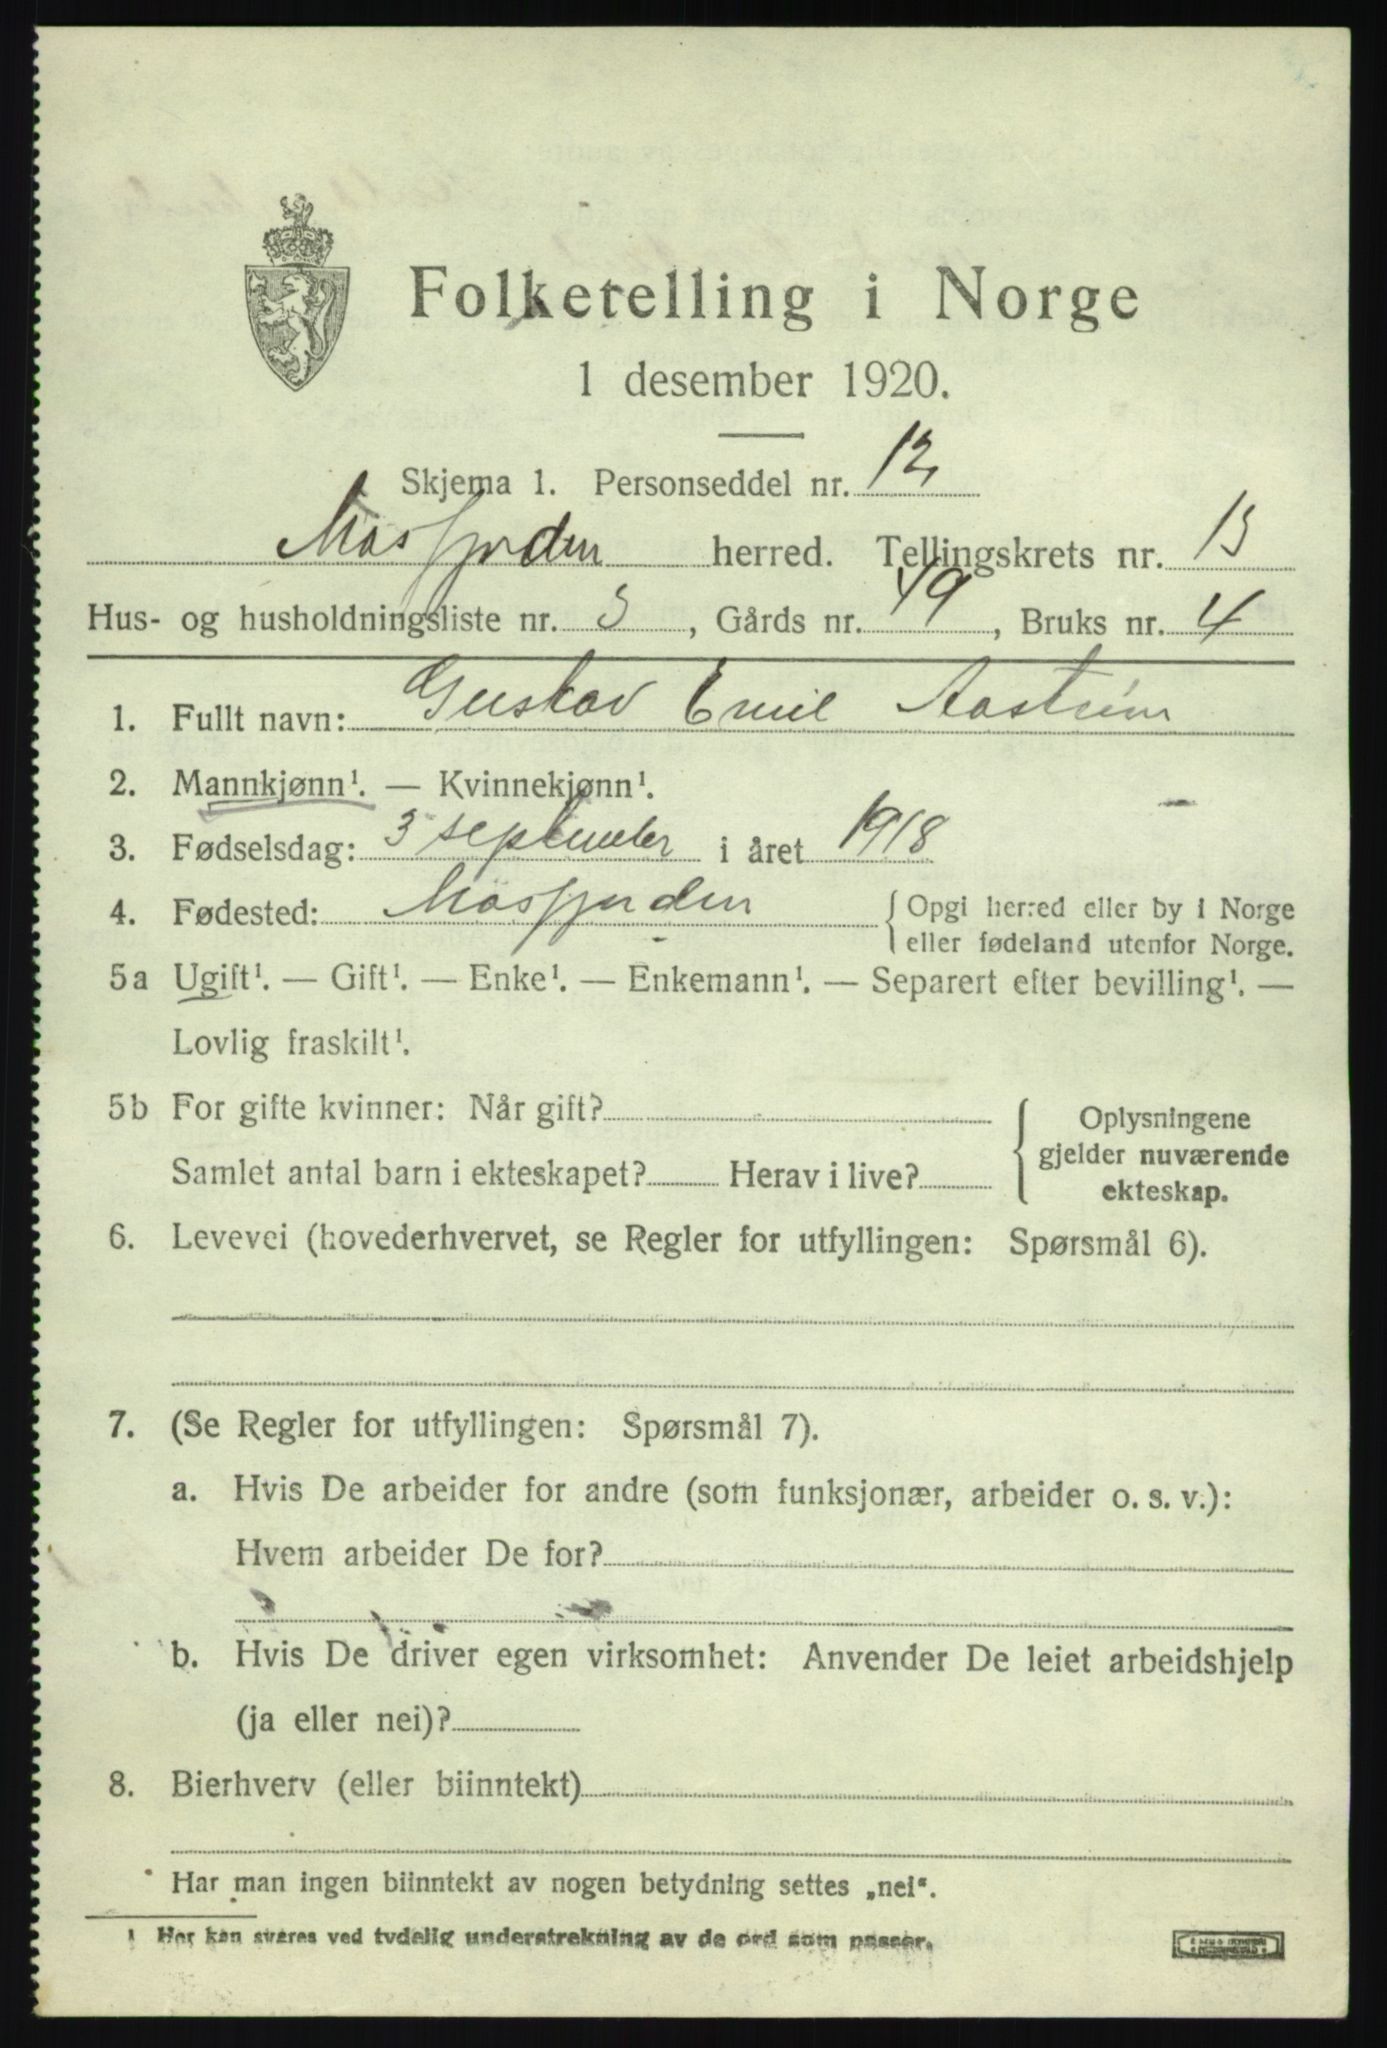 Folketelling i Norge
1 desember 1920.
Skjema 1. Personseddel nr. 12
Måsfjorden herred. Tellingskrets nr. 13
Hus- og husholdningsliste nr. 3, Gårds nr. 49, Bruks nr. 4
1. Fullt navn: Gustav Emil Aastrøm
2. Mannkjønn¹. — Kvinnekjønn¹.
3. Fødselsdag: 3 september i året 1918
4. Fødested: Måsfjorden {Opgi herred eller by i Norge
eller fødeland utenfor Norge.
5a Ugift¹. — Gift¹. — Enke¹. — Enkemann¹. — Separert efter bevilling¹. —
Lovlig fraskilt¹.
5b For gifte kvinner: Når gift?
Samlet antal barn i ekteskapet? Herav i live?
{Oplysningene
gjelder nuværende
ekteskap.
6. Levevei (hovederhvervet, se Regler for utfyllingen: Spørsmål 6).
7. (Se Regler for utfyllingen: Spørsmål 7).
a. Hvis De arbeider for andre (som funksjonær, arbeider o. s. v.):
Hvem arbeider De for?
b. Hvis De driver egen virksomhet: Anvender De leiet arbeidshjelp
(ja eller nei)?
8. Bierhverv (eller biinntekt)
Har man ingen biinntekt av nogen betydning settes „nei“.
1 Her kan svares ved tydelig understrekning av de ord som passer.